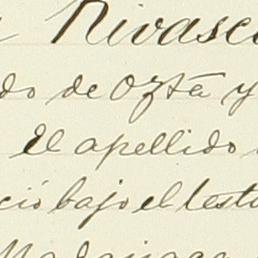 Rivasc
do de Ozta y
El apellido
ció bajo el testa